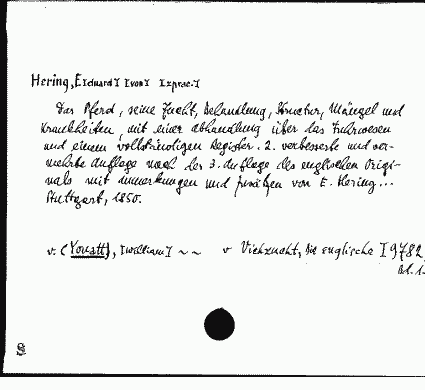 Hering, E[duard] [von] [praec.]
Das Pferd, seine Zucht, Behandlung, Structur, Mängel und
Krankheiten, mit einer abhandlung über das Fuhrwesen
und einem vollständigen Register. 2. verbesserte und ver-
mehrte Auflage nach der 3. Auflage des englischen Origi-
nals mit Anmerkungen und Zusätzen von E. Hering...
Stuttgart, 1850.
v. (Youatt), [William] ~ ~ v Viehzucht, Die englische [9782,
Bd. 1.